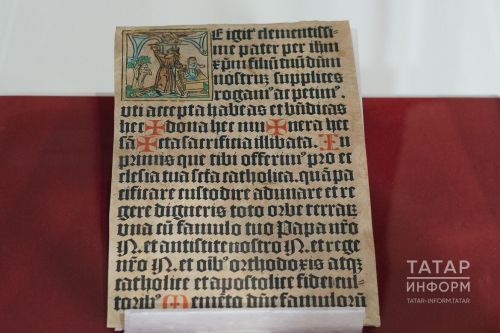 E igit᷒ clementissi
me pater per ihm
xp̄m filiū tuū dn̄m
nostrū supplices
rogam᷒ ac petim᷒.
vti accepta habeas et bn̄dicas
hec ✠ dona hec mu ✠ nera hec
sā ✠ cta sacrificia illibata. In
primis que tibi offerim᷒ pro ec
clesia tua sc̄ta catholica. quā pa
cificare custodire adunare et re
gere digneris toto orbe terraꝝ
vna cū famulo tuo Papa nr̄o
N. et antistite nostro N. et rege
nr̄o N. et oīb᷒ orthodoxis atqꝫ
catholice et apostolice fidei cul
torib᷒ Memēto dn̄e famulorū
ТАТАР
ИНФОРМ
TATAR-INFORM.TATAR